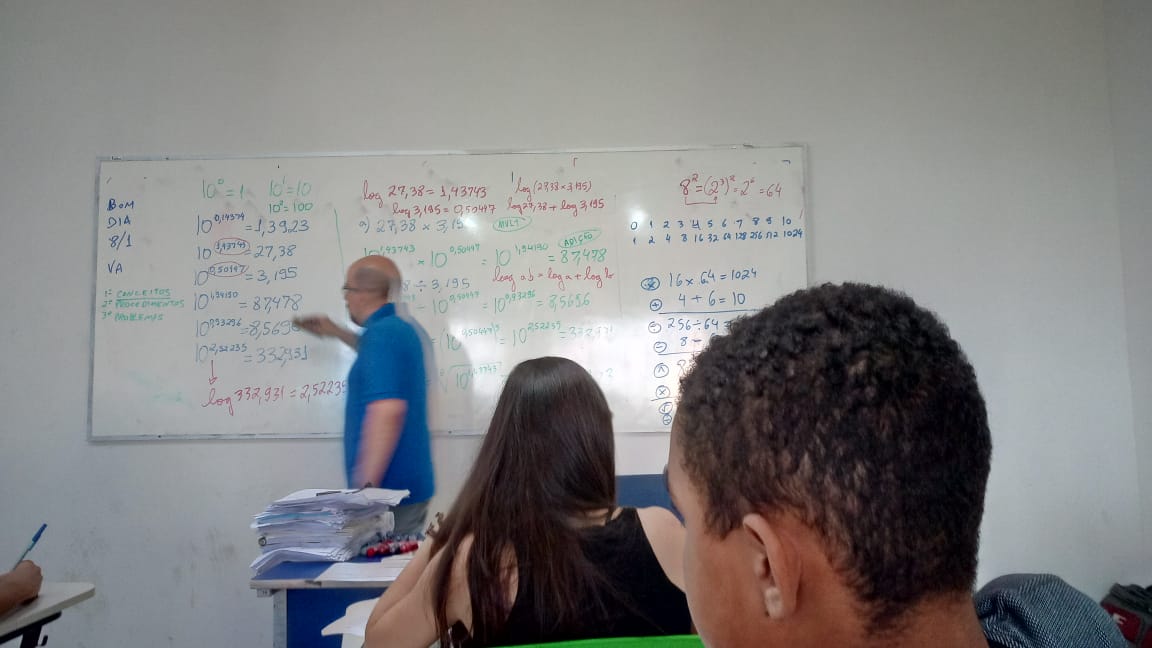 BOM
DIA
8/1
VA
1º CONCEITOS
2º PROCEDIMENTOS
3º PROBLEMAS
10⁰ = 1
10¹ = 10
10² = 100
10^0,14374 = 1,3923
10^1,43743 = 27,38
10^0,50447 = 3,195
10^1,94190 = 87,478
10^0,93296 = 8,569
10^2,52235 = 332,931
log 332,931 = 2,52235
log 27,38 = 1,43743
log 3,195 = 0,50447
log (27,38 × 3,195)
log 27,38 + log 3,195
a) 27,38 × 3,19
MULT
10^1,43743 × 10^0,50447 = 10^1,94190 = 87,478
ADIÇÃO
log ab = log a + log b
8 ÷ 3,195
÷ 10^0,50447 = 10^0,93296 = 8,5696
= (10^0,50447)⁵ = 10^2,52235 = 332,931
10^1,43743
8² = (2³)² = 2⁶ = 64
0 1 2 3 4 5 6 7 8 9 10
1 2 4 8 16 32 64 128 256 512 1024
× 16 × 64 = 1024
+ 4 + 6 = 10
÷ 256 ÷ 64
− 8 −